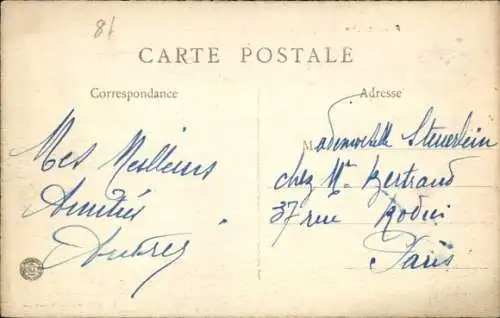 81
CARTE POSTALE
Correspondance
Adresse
Mes Meilleurs
Amitiés
Mademoiselle Steuerlein
chez Mr Bertrand
37 rue Rodin
Paris